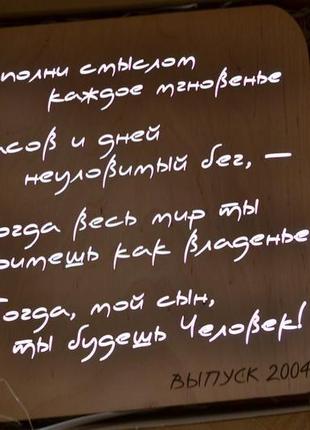 полни смыслом
каждое мгновенье
асов и дней
неуловимый бег, —
огда весь мир ты
римешь как владенье
Тогда, мой сын,
ты будешь Человек!
ВЫПУСК 2004